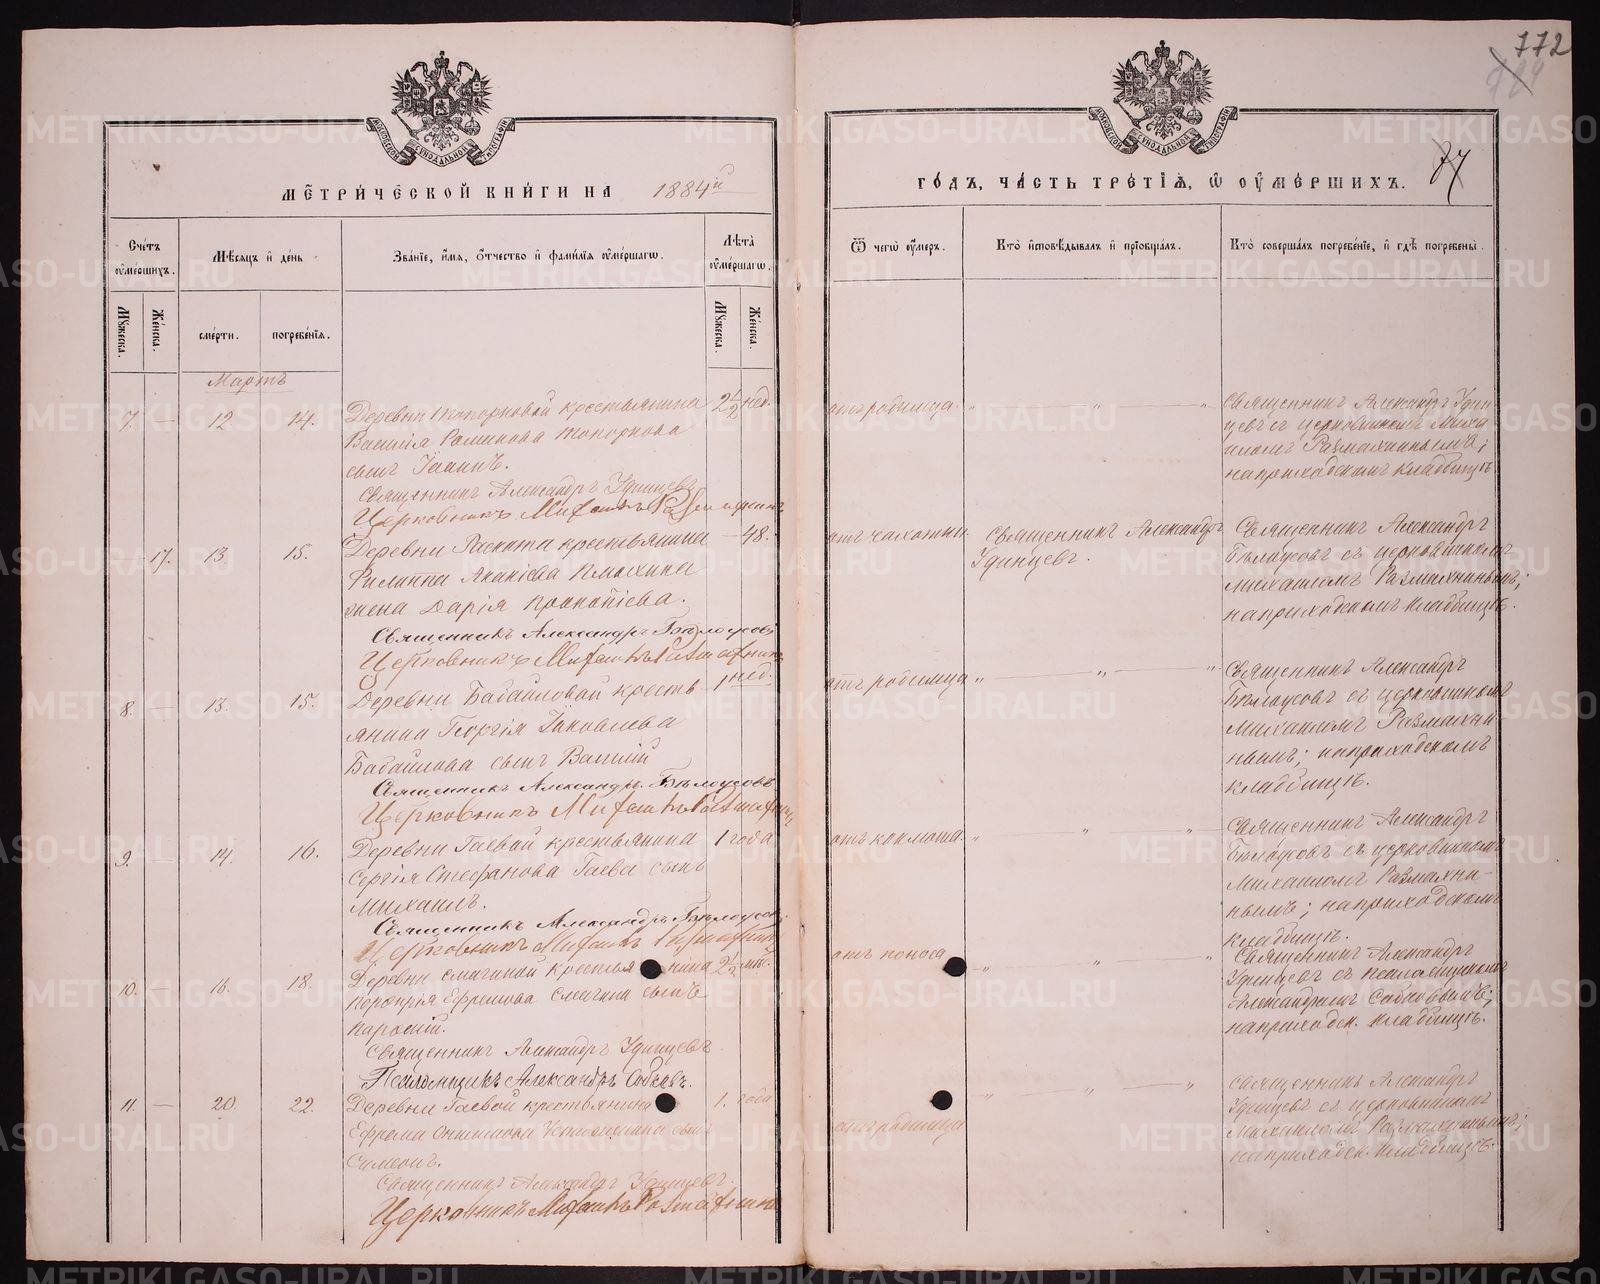 772
74
МЕТРИЧЕСКОЙ КНИГИ НА 1884й
ГОДЪ, ЧАСТЬ ТРЕТІЯ, Ѿ ОУМЕРШИХЪ.
Счетъ оумершихъ.
Мѣсяцъ и день
Званіе, имя, отчество и фамилія оумершагѡ.
Лѣта оумершагѡ.
Мужеска.
Женска.
смерти.
погребенія.
Мужеска.
Женска.
Ѿ чегѡ оумеръ.
Кто исповѣдывалъ и пріобщалъ.
Кто совершалъ погребеніе, и гдѣ погребены.
Мартъ
7. — 12 14.
Деревни Топорковой крестьянина
Василія Романова Топоркова
сынъ Іоаннъ.
2½ нед.
отъ родимца
Священникъ Александръ Удин-
цевъ съ церковникомъ Миха
иломъ Размахнинымъ;
на приходскомъ кладбищѣ
Священникъ Александръ Удинцевъ
Церковникъ Михаилъ Размахнинъ
17. 13 15.
Деревни крестьянина
Филиппа Акакіева
жена Дарія Прокопіева.
— 48.
отъ чахотки.
Священникъ Александръ
Удинцевъ.
Священникъ Александръ
Бѣлоусовъ съ церковникомъ
Михаиломъ Размахнинымъ;
на приходскомъ кладбищѣ.
Священникъ Александръ Бѣлоусовъ
Церковникъ Михаилъ Размахнинъ
8. — 13. 15.
Деревни Бабайловой кресть
янина Георгія Іаковлева
Бабайлова сынъ Василій
1 нед.
отъ родимца
Священникъ Александръ
Бѣлоусовъ съ церковникомъ
Михаиломъ Размахни
нымъ; на приходскомъ
кладбищѣ.
Священникъ Александръ Бѣлоусовъ
Церковникъ Михаилъ Размахнинъ
9. — 14. 16.
Деревни Гаевой крестьянина
Сергія Стефанова Гаева сынъ
Михаилъ.
1 года
отъ коклюша
Священникъ Александръ
Бѣлоусовъ съ церковникомъ
Михаиломъ Размахни-
нымъ; на приходскомъ
кладбищѣ.
Священникъ Александръ Бѣлоусовъ
Церковникъ Михаилъ Размахнинъ
10. — 16. 18.
Деревни Смагиной крестьянина
Порфирія Ефремова Смагина сынъ
2½ мѣс.
отъ поноса
Священникъ Александръ
Удинцевъ съ псаломщикомъ
Александромъ
на приходск. кладбищѣ.
Священникъ Александръ Удинцевъ
Псаломщикъ Александръ
11. — 20. 22.
Деревни Гаевой крестьянина
Ефрема сынъ
Симеонъ.
1. года
отъ родимца
Священникъ Александръ
Удинцевъ съ церковникомъ
Михаиломъ Размахнинымъ;
на приходск. кладбищѣ.
Священникъ Александръ Удинцевъ
Церковникъ Михаилъ Размахнинъ
METRIKI.GASO-URAL.RU